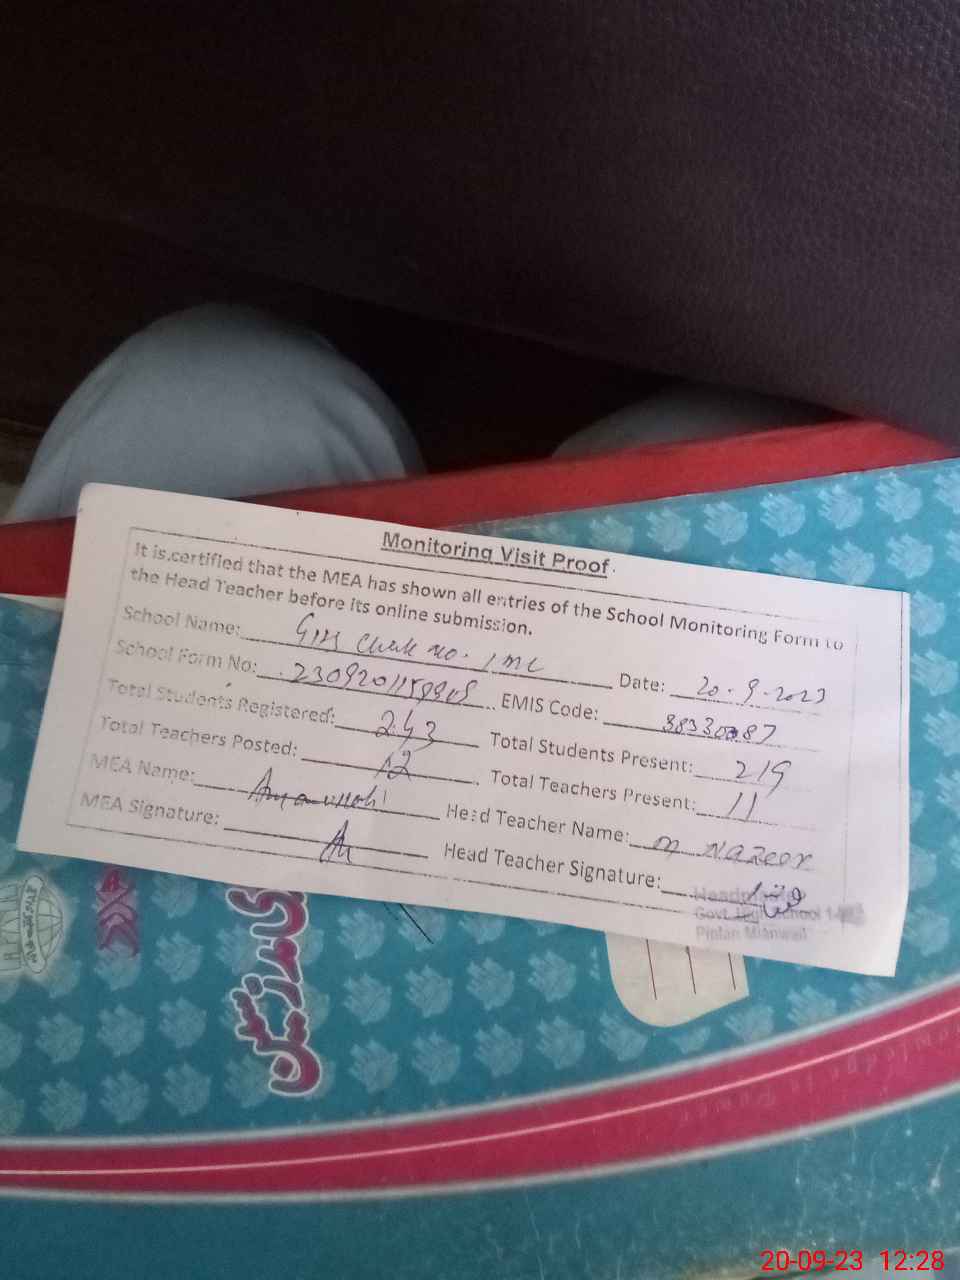 Monitoring Visit Proof.
It is certified that the MEA has shown all entries of the School Monitoring Form to
the Head Teacher before its online submission.
School Name: GHS Chak No. 1 ML Date: 20-9-2023
School Form No: EMIS Code:
Total Students Registered: 243 Total Students Present: 219
Total Teachers Posted: 12 Total Teachers Present: 11
MEA Name: Head Teacher Name: M Nazeer
MEA Signature: Head Teacher Signature:
Headmaster
Govt. High School
Piplan Mianwali
20-09-23 12:28